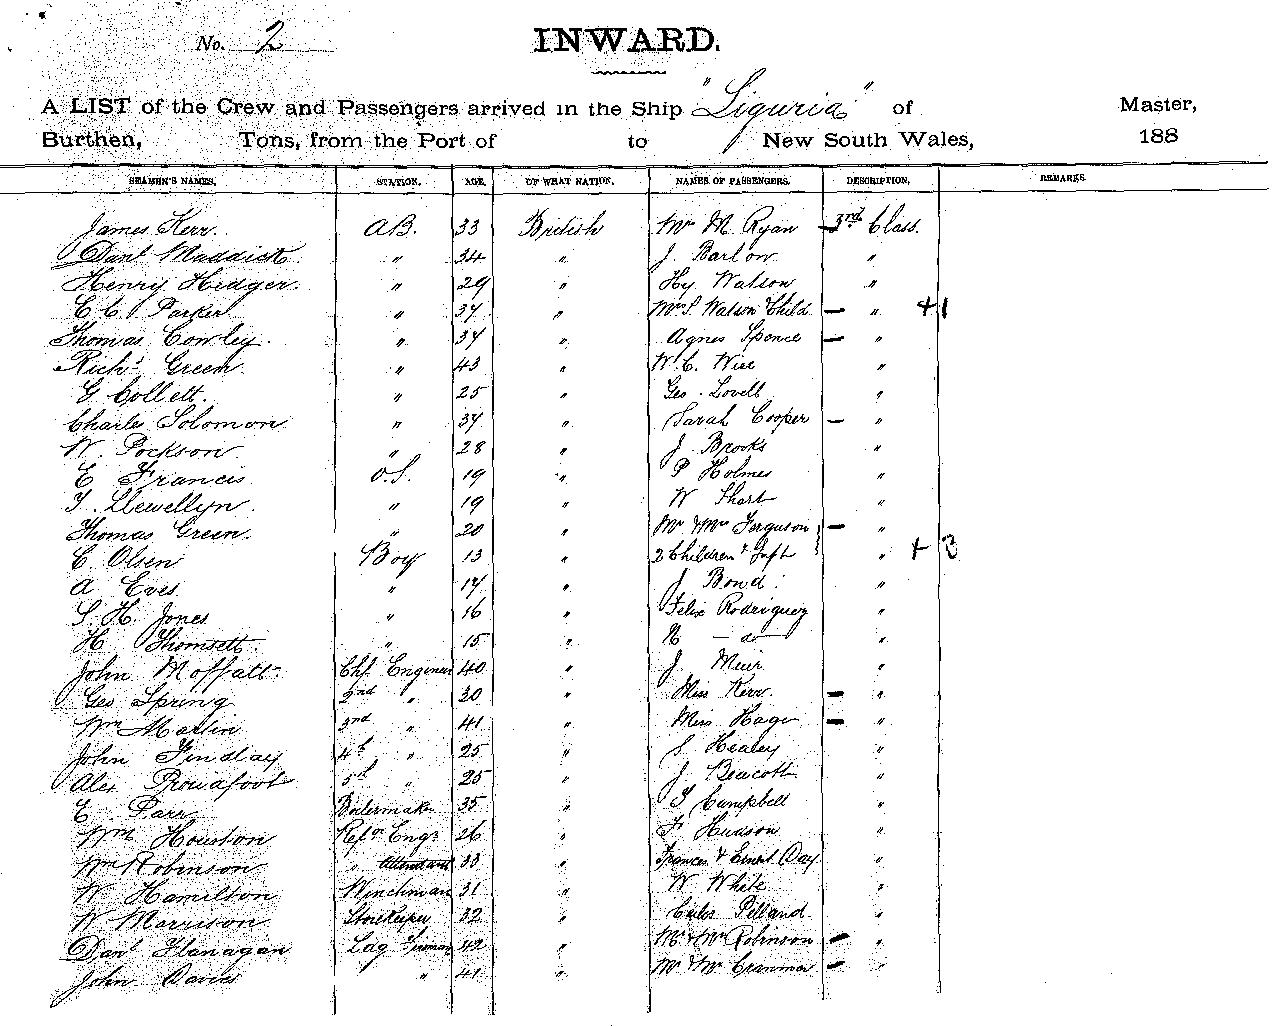 No. 2
INWARD.
A LIST of the Crew and Passengers arrived in the Ship "Liguria" of Master,
Burthen, Tons, from the Port of to New South Wales, 188
SEAMEN'S NAMES. STATION. AGE. OF WHAT NATION. NAMES OF PASSENGERS. DESCRIPTION. REMARKS.
James Kerr. A.B. 33 British Mrs M. Ryan — 3rd Class.
Danl Maddick " 34 " J. Barlow "
Henry Hedger. " 29 " Hy. Watson "
E C Parker " 37 " Mrs S. Watson & Child — " +1
Thomas Cowley. " 37 " Agnes Spence — "
Richd Green " 43 " W. C. Wise "
G Collett. " 25 " Geo. Lovell "
Charles Solomon " 37 " Sarah Cooper — "
W. Pockson " 28 " J. Brooks "
E Francis O.S. 19 " P Holmes "
T. Llewellyn. " 19 " W Short "
Thomas Green. " 20 " Mr & Mrs Ferguson } — "
C Olsen Boy 13 " 2 Children & Inft } " + 3
A Eves " 17 " J Bond "
S. H. Jones " 16 " Felix Rodriguez "
H Thomsett. " 15 " N — do — "
John Moffatt. Chf. Engineer 40 " J. Muir "
Geo Spring 2nd " 30 " Miss Kerr. — "
Wm Martin 3rd " 41 " Miss Hage — "
John Findlay 4th " 25 " S. Healey "
Alex Proudfoot 5th " 25 " J. Beacott "
E. Parr Boilermaker 35 " T Campbell "
Wm Houston Refgn Engr 26 " F. Hudson "
Wm Robinson " attendant 33 " Frances & Ernest Day "
W Hamilton Winchman 31 " W White "
W Morrison Storekeeper 32 " Pelland "
Danl Flanagan Ldg Fireman 42 " Mr & Mrs Robinson — "
John Davies " 41 " Mr & Mrs — "